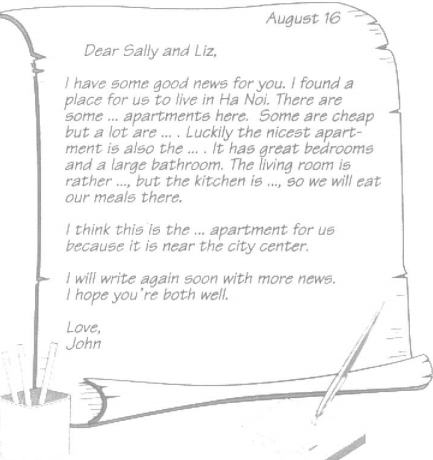 August 16
Dear Sally and Liz,
I have some good news for you. I found a
place for us to live in Ha Noi. There are
some ... apartments here. Some are cheap
but a lot are ... . Luckily the nicest apart-
ment is also the ... . It has great bedrooms
and a large bathroom. The living room is
rather ..., but the kitchen is ..., so we will eat
our meals there.
I think this is the ... apartment for us
because it is near the city center.
I will write again soon with more news.
I hope you're both well.
Love,
John